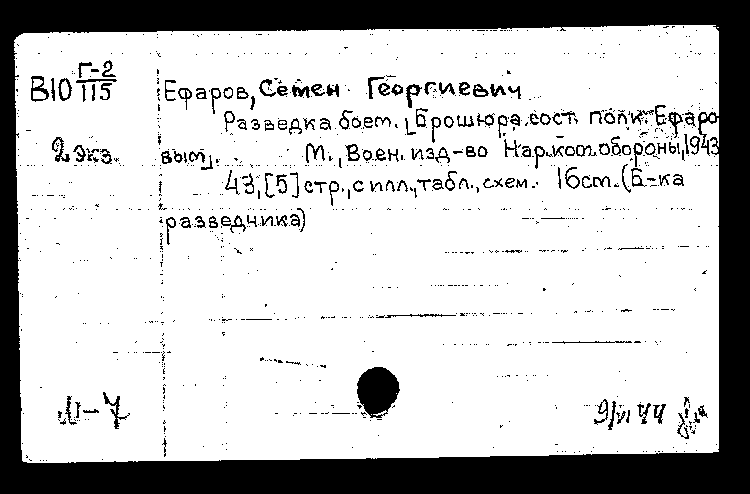 В10 Г-2/115
Ефаров, Семен Георгиевич
Разведка боем. [Брошюра сост. полк. Ефаро
2 экз.
вым]. М., Воен. изд-во Нар.ком.обороны, 1943
43, [5] стр., с илл., табл., схем. 16см. (Б-ка
разведчика)
9/VI 44